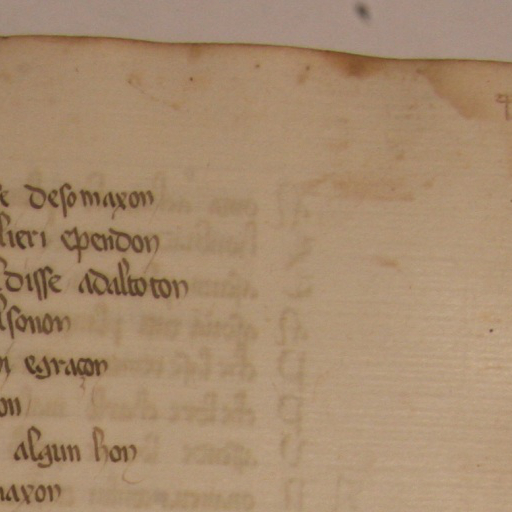 e desomaxon
lieri ependon
disse adaltoton
lsonon
ni egraçon
on
algun hon
maxon